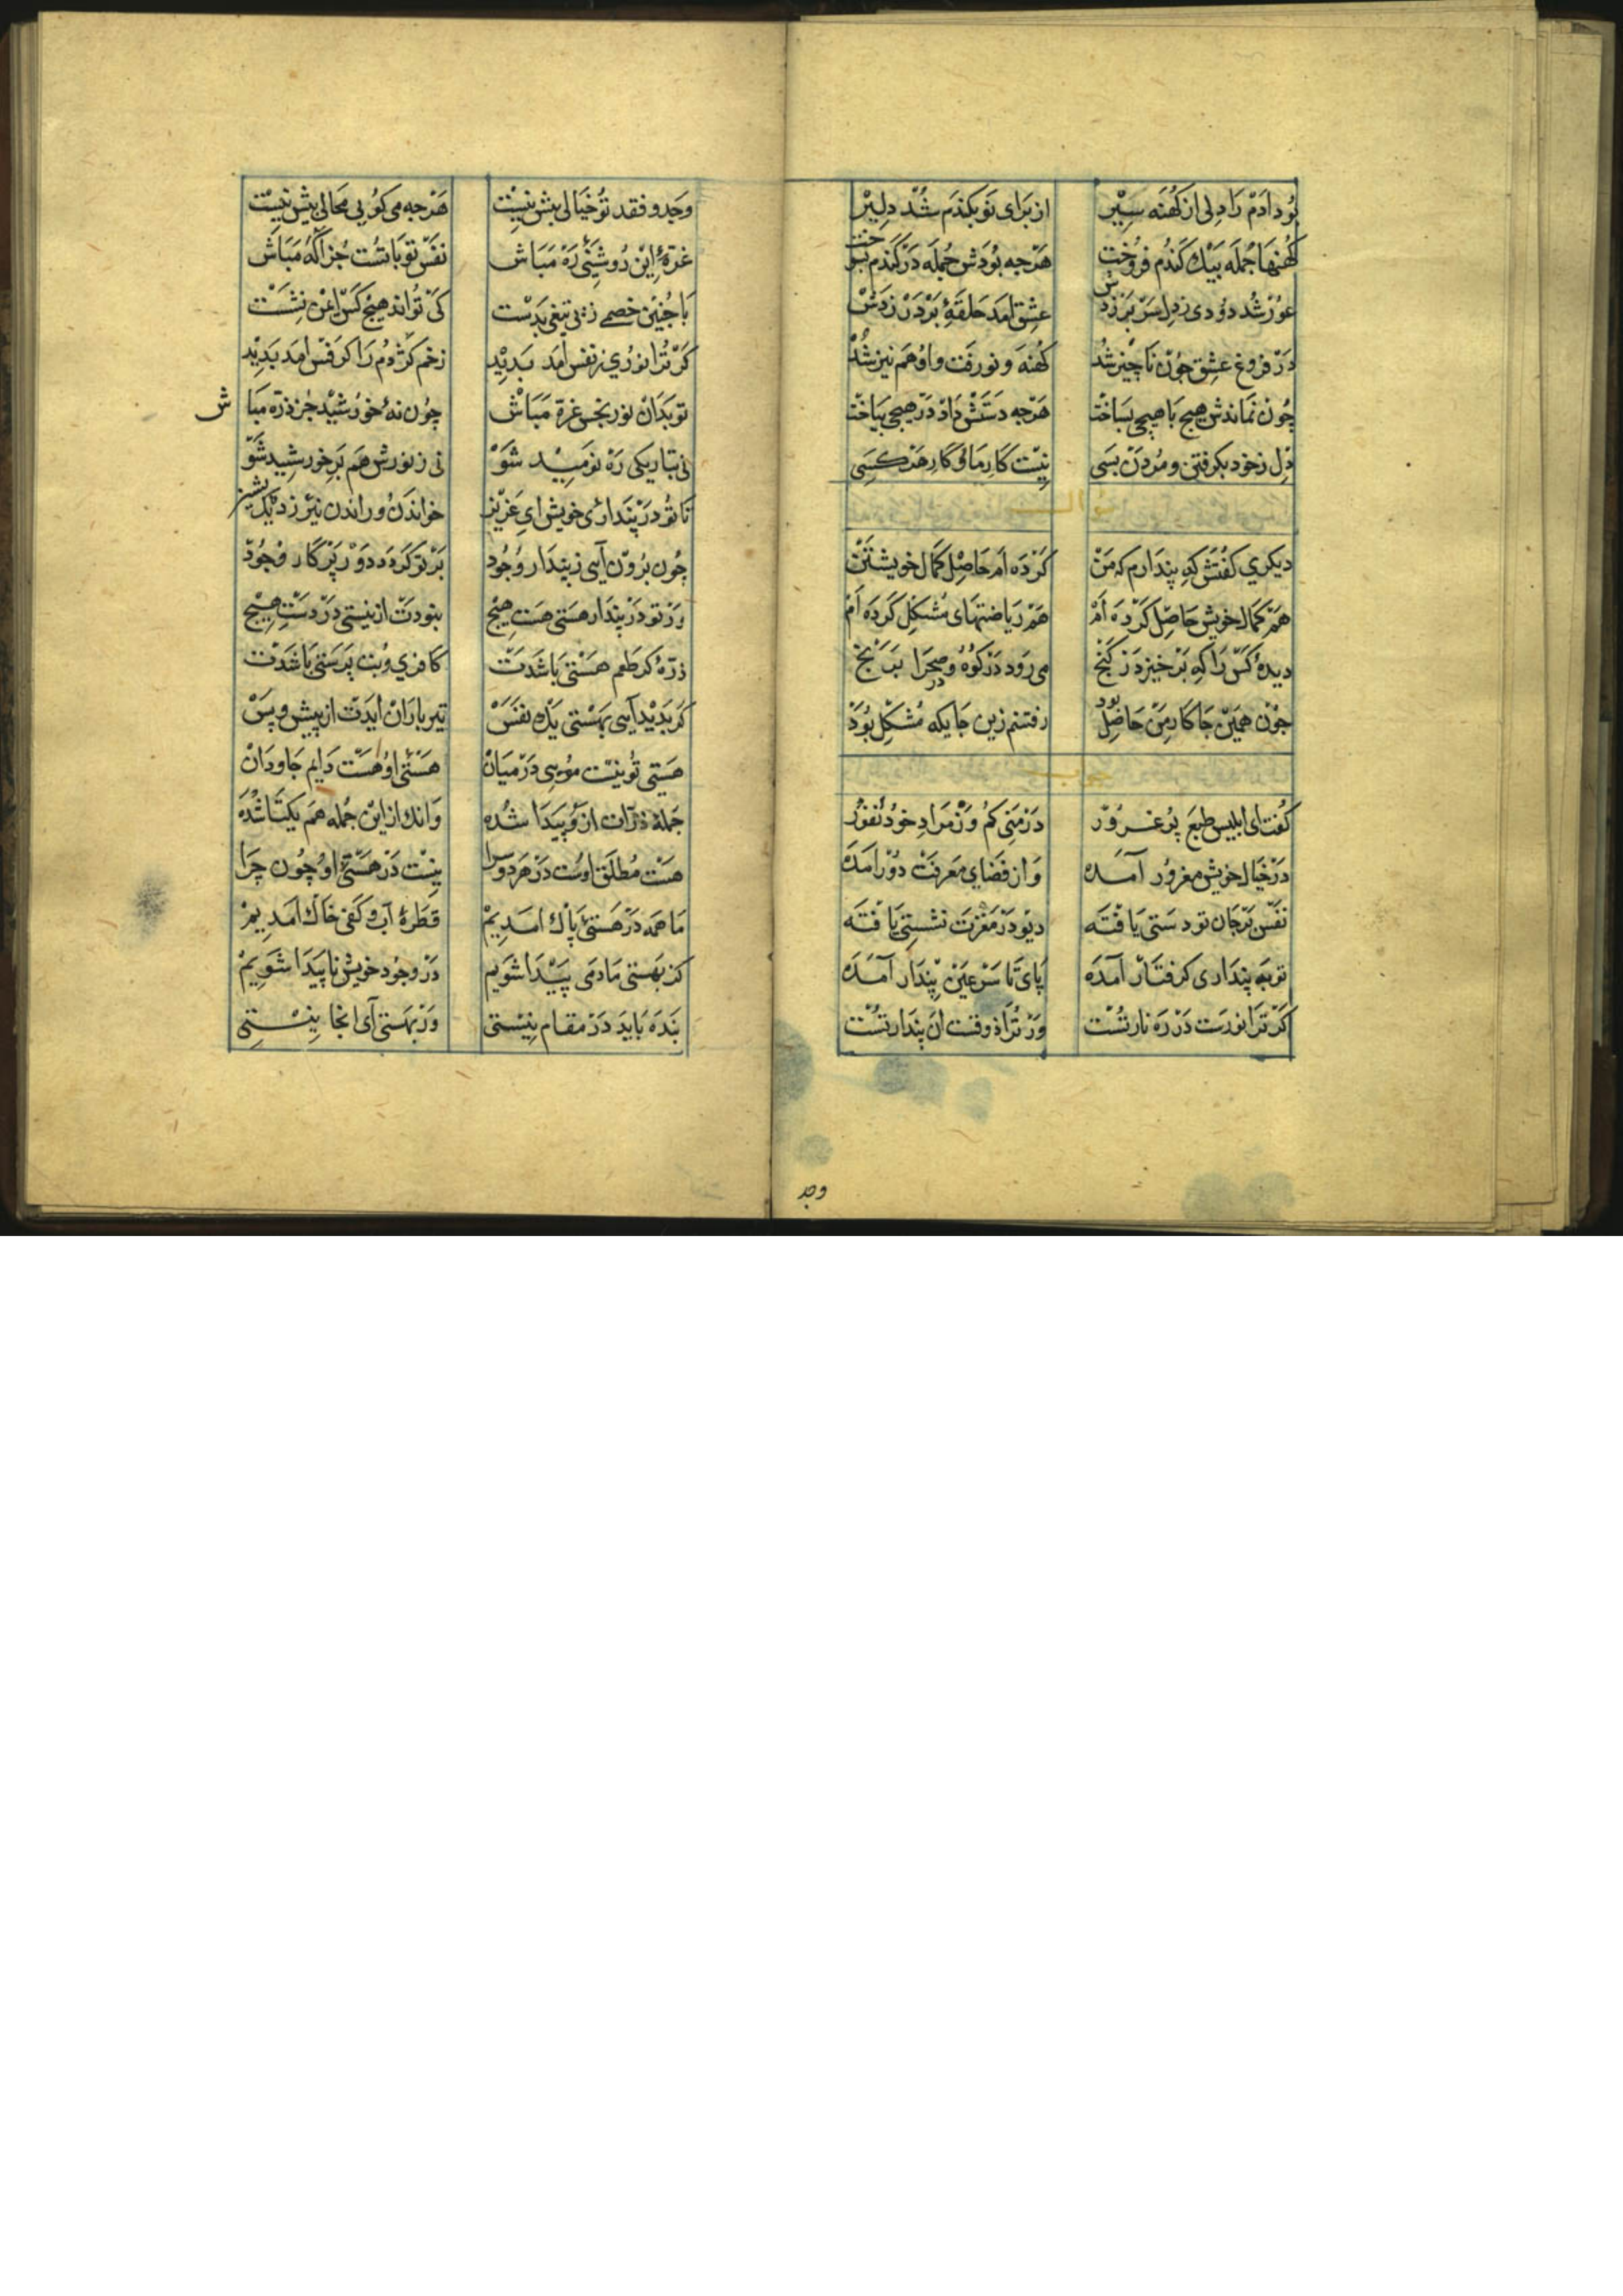 بُود آدَمْ رَا دِلی از کُهنَه سِیْر از بَرای نَو بکندَم شُدْ دِلِیْرْ
کُهنهَا جُمله بَیَك کَندُم فروُخت هَرْجه بوُدَش جُمله دَرْ کَندم بسوخت
عوُرْ شُد دوُدی زدِل سَرْ بَرْزدش عِشق امَد حَلقَهٔ بَرْ دَرْ زدَشْ
دَرْ فروغِ عشِق چُونْ نَاچِیْز شُد کُهنَه ونورَفت واوُهَم نیز شُدْ
چُونْ نَماندش هیج بَا هیچی بسَاخْت هَرْجه دَستَشْ دَادْ دَرْ هیچی ببَاخت
دِل زخود بکرفتن ومُردَنْ بسَی نِیْت کَارِ مَا وُکَارِ هَرْ کسَِی
دیکری کفتَش که پندَارم که مَنْ کَرْدَه اَم حَاصِل کَمَال خویشتَنْ
هَمْ کمَال خویش حَاصِل کَرْدَه اَمْ هَم رِیَاضتهَای مُشکِل کَردَه اَمْ
دیدهٔ کَسْ رَا که بَرْ خیزد ز کَنج می رَود دَرْ کوُهُ و در صحرَا بَرَنج
جوُن همَینْ جَا کَار مَنْ حَاصِل بود رفتنم زین جَایکه مُشکِل بُوَدْ
کفت ای ابلیس طبعَ پُر غروُرْ دَرْ مَنی کمُ وَزْ مُرَادِ خود نُفوُر
دَرْ خیَالِ خویش مغروُر آمَده وَ از فضَای مَعرفَتْ دوُر امَدَه
نَفسْ بَرْ جَان تو دستی یَافتَه دیوْ دَرْ مَغْزَت نشستِی یَافتَه
تو بَه پنداری کرفتَار آمَدَه پَای تَا سَرْ عیْن پِندَار آمَدَه
کَرْ تُرا نورست دَرْ رَه نارِ تُسْت وَرْ تُرَا ذوقست انَ پندَار تُسْت
وجد
وَجد و فقد تُو خیَالی بیش نِیسْت هَرْجه می کوُیی مَحَالی بیش نیست
غرّهٔ اینْ رُوشنَیْ رَهْ مَبَاش نفَسْ توْ بَا تسُت جُز اکَه مبَاش
بَا جُنیَن خصمی ز بی تیغی بَدَسْت کَیْ تُوانَد هیج کَسْ ایْمن نشَسْت
کَرْ تُرا نوُری ز نفس امَد بَدیدْ زخم کَژدُم رَا کرفسْ امَد بَدیدْ
تو بَدَانْ نور نجس غرهْ مَبَاشْ چوُن نهٔ خوُرشیْد جُز ذرّه مبَاش
نی بتَاریکی رَهْ نومیْد شَوْ نی ز نورش هَم بَرِ خورشید شَوْ
تَا توُ دَرْ پنداری خویش ای عَزیز خواندَنُ ورَاندن نَیرزد یک پشیز
چوُن بُروُنْ آیی ز پندَار وُجوُد بَرْ تو کَرْدَد دَوْر پَرْکَار وجُودْ
وَرْ تو دَرْ پندَار هستی هَست هیچ نبودَتْ از نیستی دَرْ دَستِ هیچ
ذرّهٔ کَر طعم هسْتی بَاشدَتْ کَافری وُبت پَرَستی بَاشدَتْ
کَر بَدیْد آیی بهَسْتی یَک نفَسْ تیر بارَانْ ایَدَتْ از پیش و پسْ
هسْتی اوُ هَسْت دَایم جَاودَانْ هَستِی تُو نیْت موُیی دَرْمیَانْ
جُملهٔ ذَرّات از وُ پیدَا شده وَانك از اینْ جُمله هَم یکتَا شُدَه
هست مُطلَق اوُست دَرْ هَر دوُ سرا نِیْسْت دَرْ هَسْتی اوُ چوُن چَرا
مَا هَمه دَرْ هَستیٔ پَاك امَدِیمْ قطرَهٔ آب و کَفی خَاك امَدِیمْ
کر بهَستی مَا دَمی پَیْدَا شَویم دَرْ وجوُد خویش نَا پَیدَا شوَیِمْ
بَندَه بَایدَ دَرْ مَقام نیسْتی وَرْ بهَستی آی انجَا نِیْسْتی